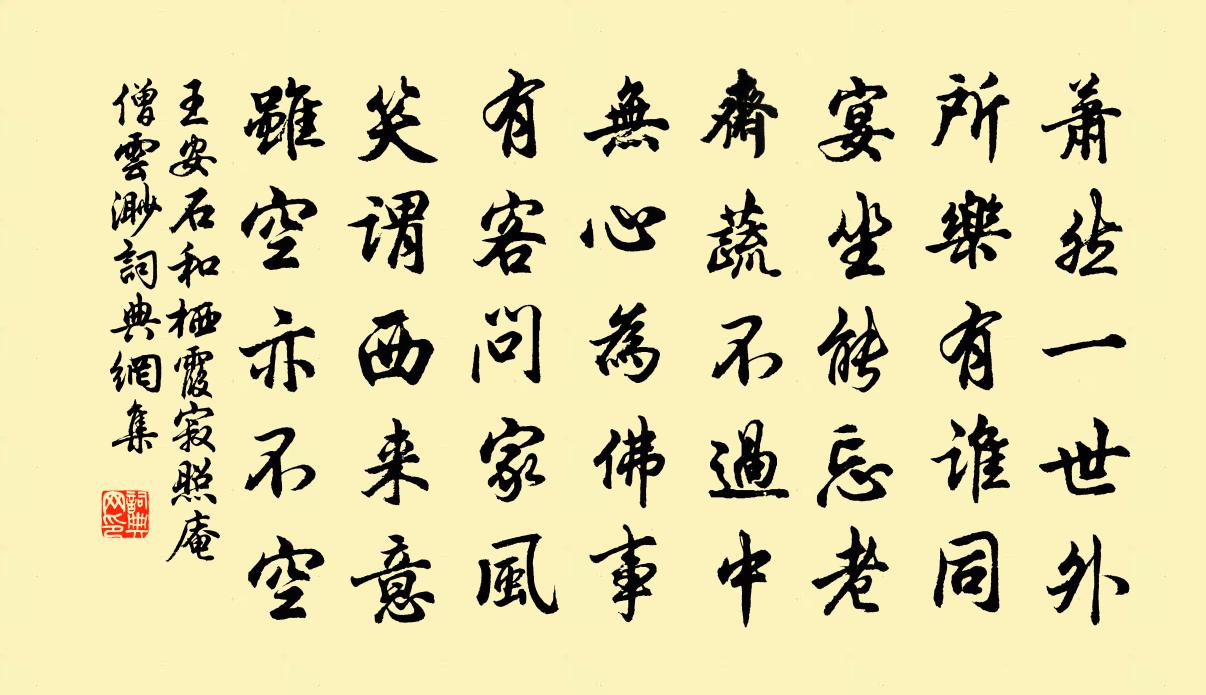 蕭然一世外
所樂有誰同
宴坐能忘老
齋蔬不過中
無心為佛事
有客問家風
笑謂西来意
雖空亦不空
王安石和栖霞寂照庵
僧雲渺詞典網集
詞典
网印